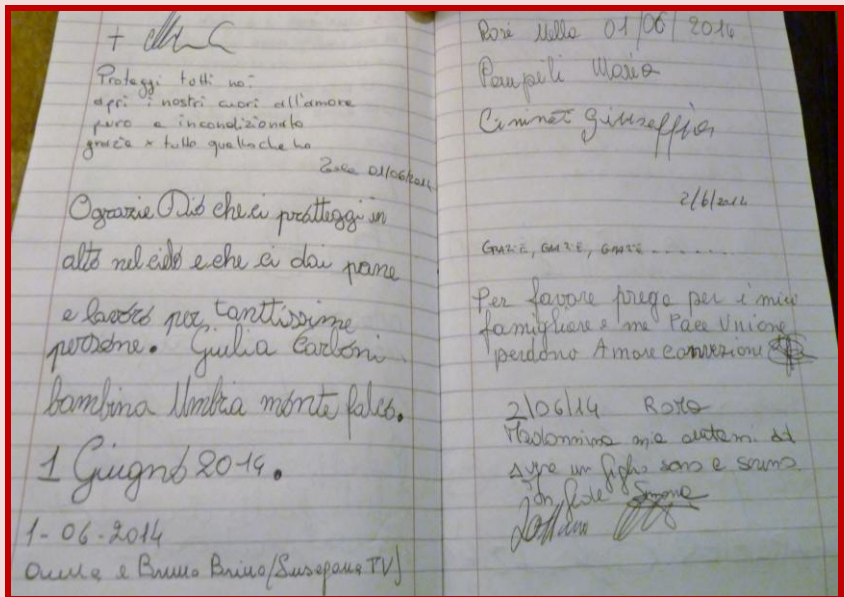 +
Proteggi tutti noi
apri i nostri cuori all'amore
puro e incondizionato
grazie x tutto quello che ho
01/06/2014
O grazie Dio che ci protteggi in
alto nel cielo e che ci dai pane
e lavoro per tanttissime
persone. Giulia Carboni
bambina Umbria monte falco.
1 Giugno 2014.
1-06-2014
e Bruno Brino (Susegana TV)
01/06/2014
Pompili Maria
2/6/2014
GRAZIE, GRAZIE, GRAZIE.......
Per favore prega per i miei
famigliare e me Pace Unione
perdono Amore
2/06/14 Roma
Madonnina mia aiutami ad
avere un figlio sano e sereno.
In fede Simona